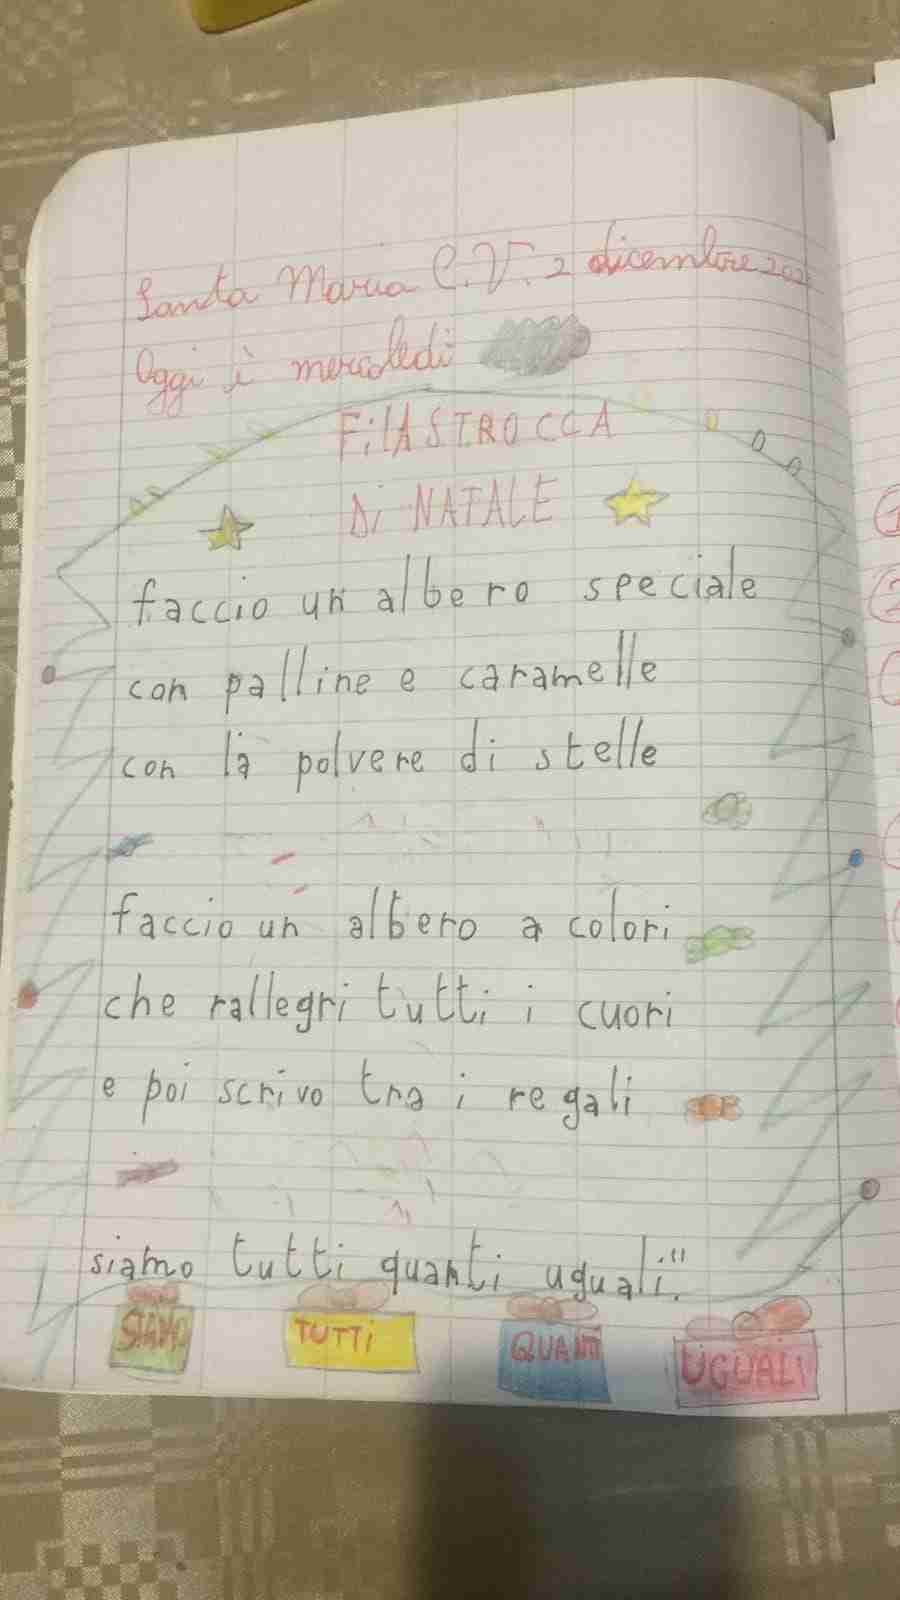 Santa Maria C.V. 2 dicembre 202
Oggi è mercoledì
FiLASTROCCA
Di NATALE
faccio un albero speciale
con palline e caramelle
con la polvere di stelle
faccio un albero a colori
che rallegri tutti i cuori
e poi scrivo tra i regali
siamo tutti quanti uguali!!!
SIAMO TUTTi QUANTI UGUALI